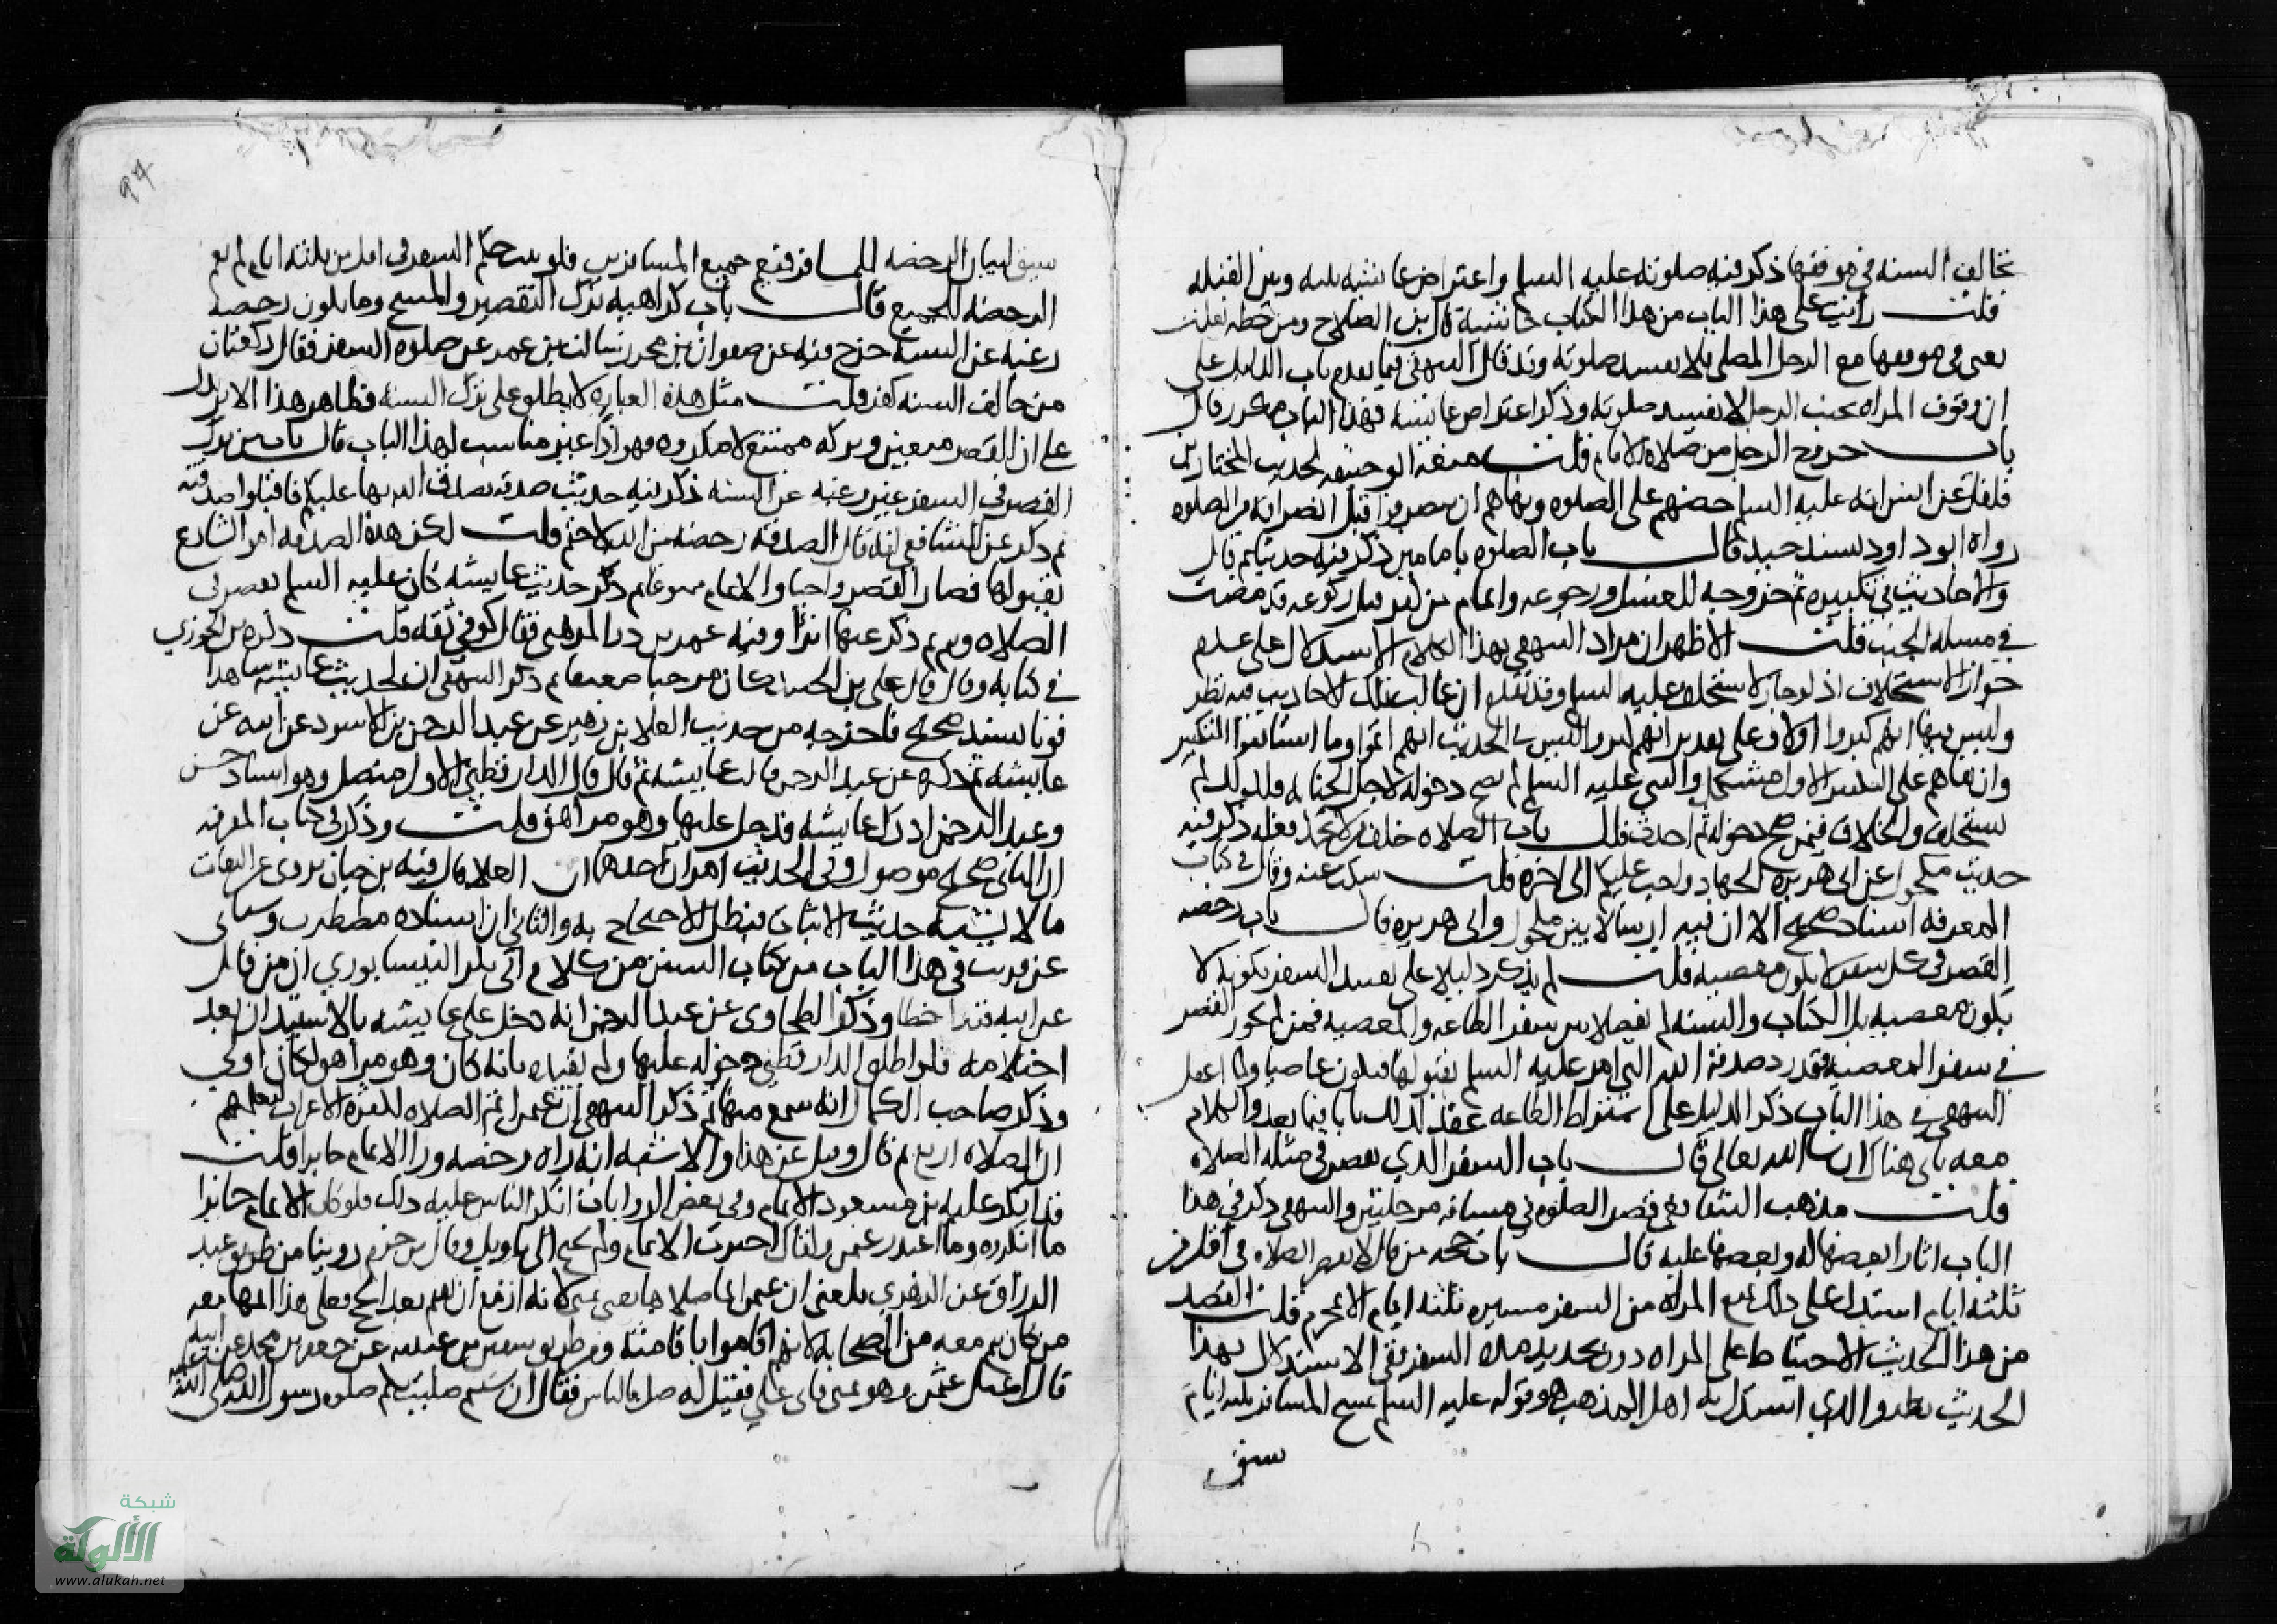 تخالف السنه في موقفها ذكر فيه صلوته عليه السلم واعتراض عائشه بينه وبين القبله
قلت رأيت على هذا الباب من هذا الكتاب حاشية قال بن الصلاح ومن خطه نقلت
يعنى في موقفها مع الرجل المصلى فلا يفسد صلوته وقد قال البيهقى فيما يعدم باب الدليل على
ان وقوف المراه بجنب الرجل لا تفسد صلوته وذكر اعتراض عائشه فهذا الباب مكرر قال
باب خروج الرجل من صلاة الامام قلت منعه ابو حنيفه لحديث المختار بن
فلفل عن انس انه عليه السلم حضهم على الصلوه ونهاهم ان ينصرفوا قبل انصرافه من الصلوه
رواه ابو داود بسند جيد قال باب الصلوه بامامين ذكر فيه حديثا ثم قال
والاحاديث في تكبيره ثم خروجه للغسل ورجوعه وائتمام من كبر قبل ركوعه قد مضت
في مسله الجنب قلت الاظهر ان مراد البيهقى بهذا الكلام الاستدلال على عدم
جواز الاستخلاف اذ لو جاز لاستخلف عليه السلم وقد تقدم ان غالب تلك الاحاديث فيه نظر
وليس فيها انهم كبروا اولا وعلى تقدير انهم كبروا ليس في الحديث انهم اتموا وما استانفوا التكبير
وان بقاهم على التكبير الاول مشكل والنبى عليه السلم لم يصح دخوله لاجل الجنابه فلذلك لم
يستخلف والخلاف فيمن صح دخوله ثم احدث قال باب الصلاه خلف من لا يحمد فعله ذكر فيه
حديث مكحول عن ابى هريره الجهاد واجب عليكم الى اخره قلت سكت عنه وقال في كتاب
المعرفه اسناده صحيح الا ان فيه ارسالا بين مكحول وابى هريره قال باب رخصه
القصر في كل سفر لا يكون معصيه قلت لم يذكر دليلا على تقييد السفر بكونه لا
يكون معصيه بل الكتاب والسنه لم يفصلا بين سفر الطاعه والمعصيه فمن لم يجوز القصر
في سفر المعصيه فقد رد صدقة الله التى امر عليه السلم بقبولها فيكون عاصيا ولما اغفل
البيهقى في هذا الباب ذكر الدليل على اشتراط الطاعه عقد لذلك بابا فيما بعد والكلام
معه ياتى هناك ان شا الله تعالى قال باب السفر الذي يقصر في مثله الصلاه
قلت مذهب الشافعى قصر الصلوه في مسافه مرحلتين والبيهقى ذكر في هذا
الباب اثارا بعضها له وبعضها عليه قال باب حجه من قال لا يقصر الصلاه في اقل من
ثلثه ايام استدل على ذلك بمنع المراه من السفر مسيره ثلثه ايام الا بمحرم قلت القصد
من هذا الحديث الاحتياط على المراه دون تحديد مده السفر ففى الاستدلال بهذا
الحديث نظر والذي استدل به اهل المذهب هو قوله عليه السلم يمسح المسافر ثلثه ايام
سيق
سيق لبيان الرخصه للمسافر فتعم جميع المسافرين فلو ثبت حكم السفر في اقل من ثلثه ايام لم تعم
الرخصه للجميع قال باب كراهيه ترك التقصير والمسح وما يكون رخصه
رغبه عن السنه خرج فيه عن صفوان بن محرز سالت بن عمر عن صلوه السفر فقال ركعتان
من خالف السنه كفر قلت مثل هذه العباره لا يطلق على ترك السنه فظاهر هذا الاثر يدل
على ان القصر متعين وتركه ممتنع لا مكروه فهو اذا غير مناسب لهذا الباب قال باب من ترك
القصر في السفر غير رغبه عن السنه ذكر فيه حديث صدقه تصدق الله بها عليكم فاقبلوا صدقته
ثم ذكر عن الشافعى انه قال الصدقه رخصه من الله لا حتم قلت لكن هذه الصدقه امر الشارع
بقبولها فصار القصر واجبا والاتمام ممنوعا ثم ذكر حديث عايشه كان عليه السلم يقصر في
الصلاه ويتم ثم ذكر عنها اثرا وفيه عمر بن ذر المرهبى فقال كوفي ثقه قلت ذكره بن الجوزي
في كتابه وقال قال على بن الجنيد كان مرجيا ضعيفا ثم ذكر البيهقى ان لحديث عايشه شاهدا
قويا بسند صحيح فاخرجه من حديث العلا بن زهير عن عبد الرحمن بن الاسود عن ابيه عن
عايشه ثم ذكره عن عبد الرحمن قالت عايشه ثم قال قال الدارقطنى الاول متصل وهو اسناد حسن
وعبد الرحمن ادرك عايشه فدخل عليها وهو مراهق قلت وذكر في كتاب المعرفه
ان الثانى صحيح موصول وفي الحديث امران احدهما ان العلا قال فيه بن حبان يروى عن الثقات
ما لا يشبه حديث الاثبات فبطل الاحتجاج به والثانى ان اسناده مضطرب وسياتى
عن قريب في هذا الباب من كتاب السنن من كلام ابى بكر النيسابوري ان من قال
عن ابيه فقد اخطا وذكر الطحاوى عن عبد الرحمن انه دخل على عايشه بالاستيذان بعد
احتلامه فلو اطلق الدارقطنى دخوله عليها ولم يقيده بانه كان وهو مراهق لكان اولى
وذكر صاحب الكمال انه سمع منها ثم ذكر البيهقى ان عثمن اتم الصلاه لكثره الاعراب ليعلمهم
ان الصلاه اربع ثم قال وقيل غير هذا والاشبه انه راه رخصه وراى الاتمام جايزا قلت
قد انكر عليه بن مسعود الاتمام وفي بعض الروايات انكر الناس عليه ذلك فلو كان الاتمام جايزا
ما انكروه وما اعتذر عثمن ولقال اخترت الاتمام ولم يحتج الى تاويل وقال بن حزم روينا من طريق عبد
الرزاق عن الزهري بلغنى ان عثمن انما صلاها يعنى بمنى لانه ازمع ان يقيم بعد الحج فعلى هذا اتمها معه
من كان يتم معه من الصحابه لانهم اقاموا باقامته ومن طريق سفيان بن عيينه عن جعفر بن محمد عن ابيه
قال اعتل عثمن وهو بمنى فاتى على فقيل له صل بالناس فقال ان شيتم صليت بكم صلوه رسول الله صلى الله عليه
شبكة
الألوكة
www.alukah.net